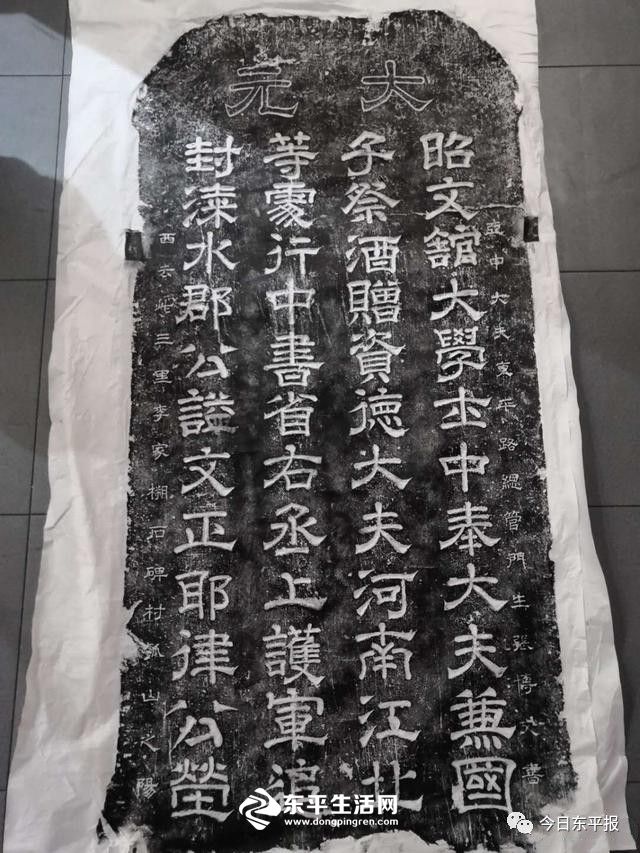 大元
亞中大夫東平路總管門生張 大書
昭文舘大學士中奉大夫兼國
子祭酒贈資德大夫河南江北
等處行中書省右丞上護軍追
封漆水郡公謚文正耶律公塋
西去 三里李家棚石碑村孤山之陽
东平生活网
www.dongpingren.com
今日东平报